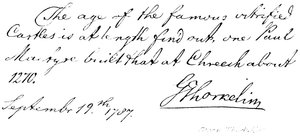 The age of the famous vitrified
Castles is at length find out. one Paul
Macktyre built that at Chreech about
1270.
September 19.th 1787.
GThorkelin